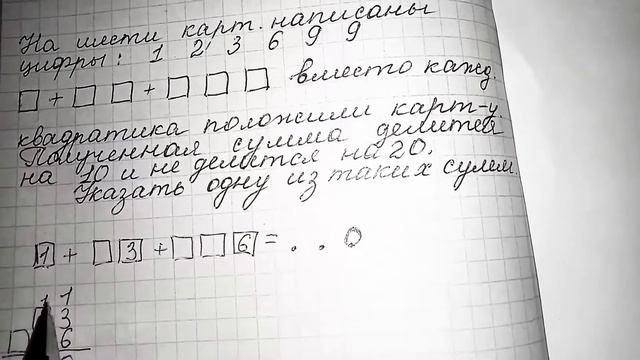 На шести карт. написаны
цифры: 1 2 3 6 9 9
□ + □ □ + □ □ □ вместо кажд.
квадратика положили карт-у.
Полученная сумма делится
на 10 и не делится на 20.
Указать одну из таких сумм.
1 + □ 3 + □ □ 6 = . . 0
1 1
3
□ 6